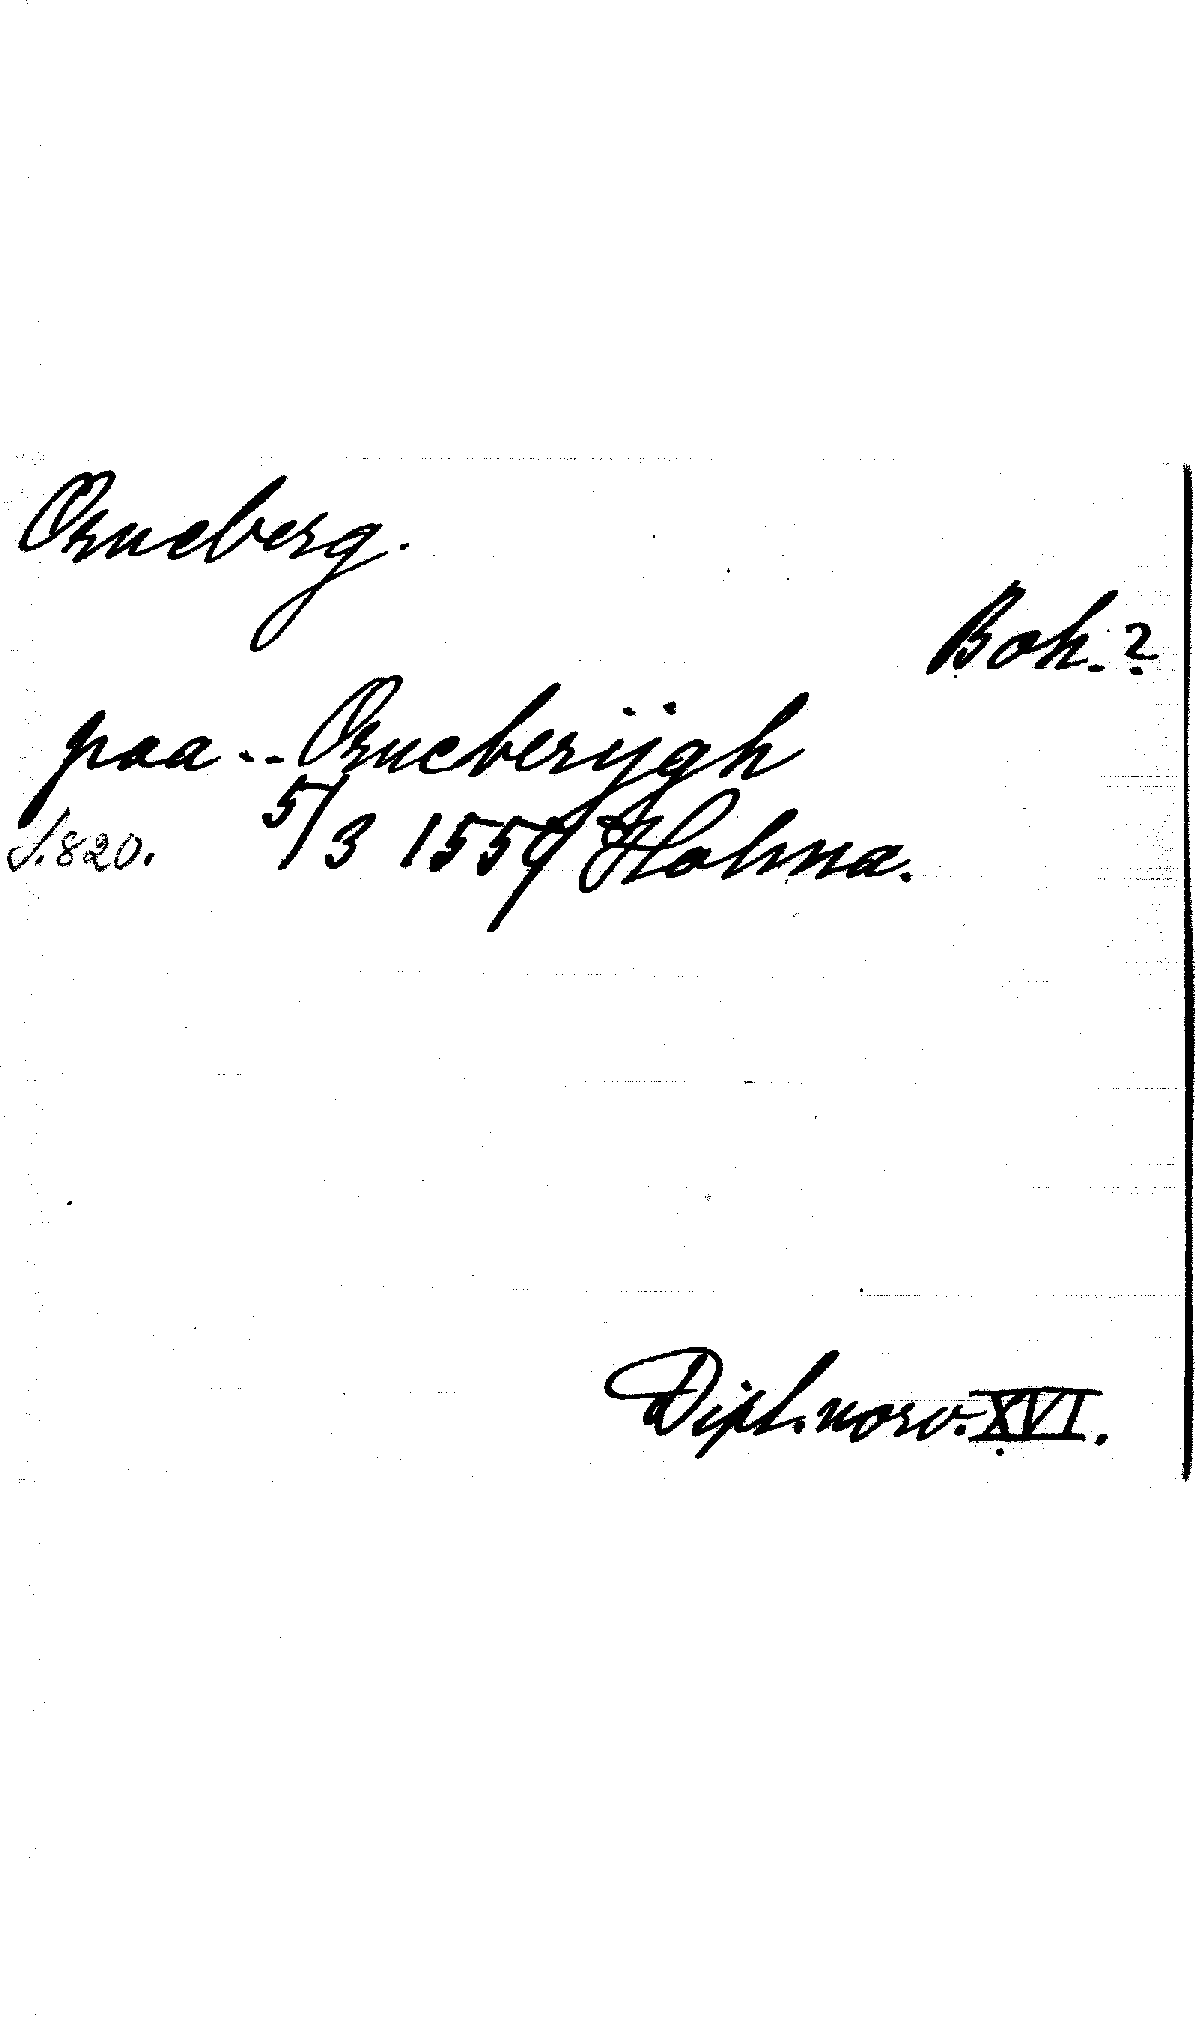 Orneberg.
Boh.?
paa -- Orneberijgh
S. 820. 5/3 1559 Holma.
Dipl. norv. XVI.